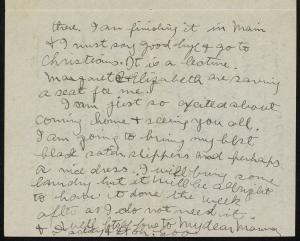 there. I am finishing it in Main
& I must say good-bye & go to
Christians. It is a lecture.
Margaret & Elizabeth are saving
a seat for me.
I am just so excited about
coming home & seeing you all.
I am going to bring my best
black satin slippers and perhaps
a nice dress. I will bring some
laundry but it will be allright
to have it done the week
after as I do not need it.
love to My dear Mammy